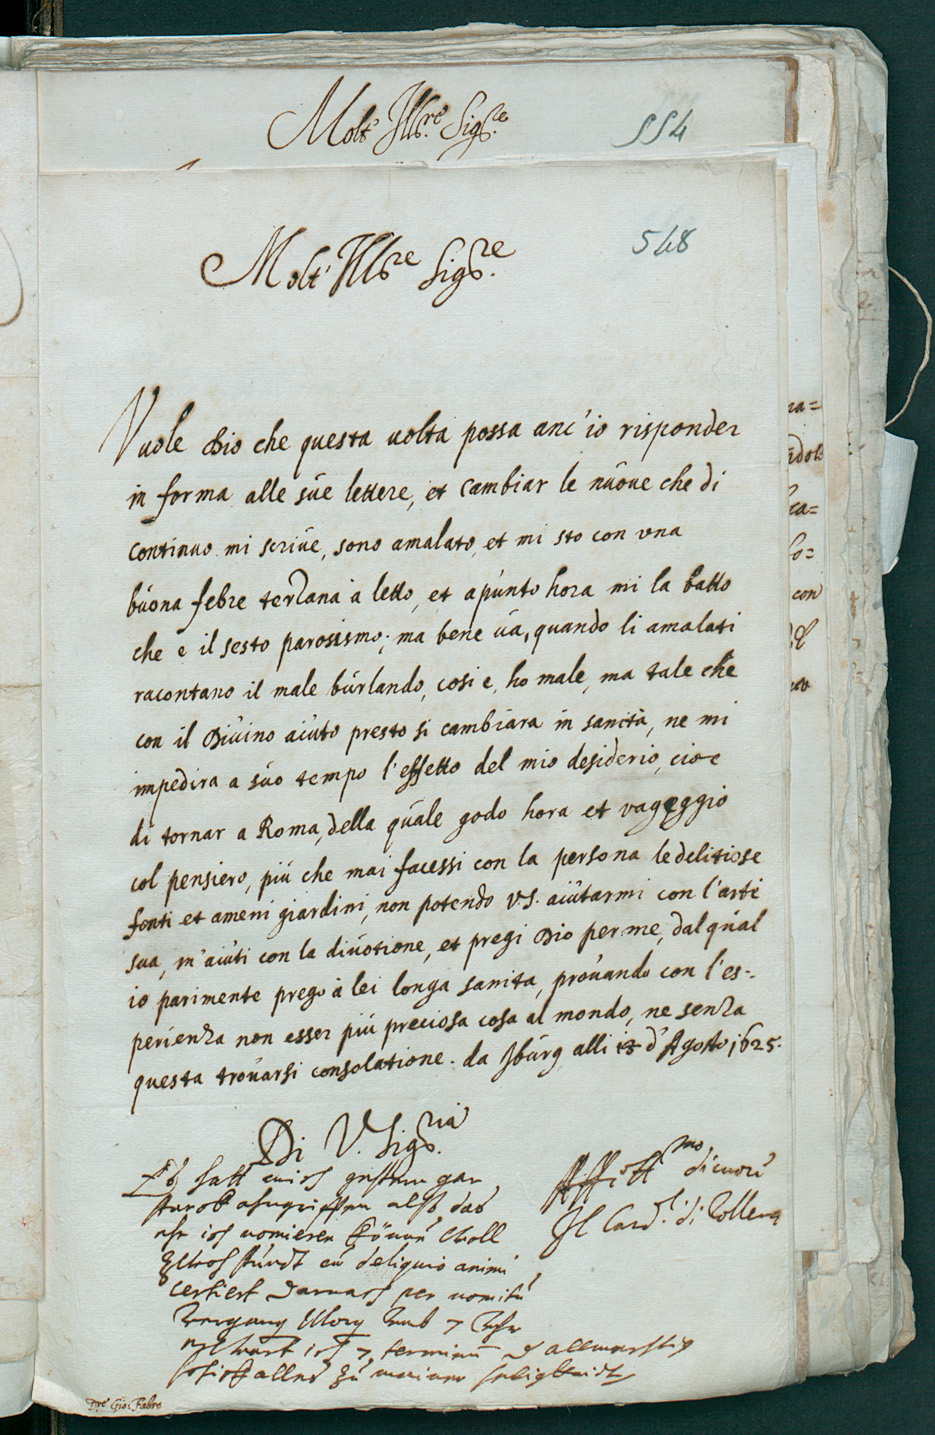 Molt' Ill.re Sig.re
554
Molt' Ill.re Sig.re
548
Vuole Dio che questa uolta possa anc'io risponder
in forma alle süe lettere, et cambiar le nüoue che di
continuo mi scriüe, sono amalato, et mi sto con vna
büona febre terzana à letto, et apünto hora mi la batto
che è il sesto parosismo; ma bene üa, quando li amalati
racontano il male bürlando, cosi e, ho male, ma tale che
con il Diüino aiüto presto si cambiara in sanità, ne mi
impedira a süo tempo l'effetto del mio desiderio, cioe
di tornar a Roma, della qüale godo hora et vageggio
col pensiero, più che mai facessi con la persona le delitiose
fonti et ameni giardini, non potendo V.S. aiütarmi con l'arte
sua, m'aiüti con la diüotione, et pregi Dio per me, dal qüal
io parimente prego à lei longa sanita, proüando con l'es-
perienza non esser più preciosa cosa al mondo, ne senza
questa troüarsi consolatione. da Jbürg alli 13 d'Agosto 1625.
Di V. Sig.ria
Es hatt mich gestern gar
starck angegriffen also das
ich vomieren
deliquio animi
darnach per vomitu
terminü
alles zu meiner seligkeidt
Affett.mo di cuore
Il Card.l di Zollern
na=
ndol
ca=
so=
con
Dre Gio: Fabro